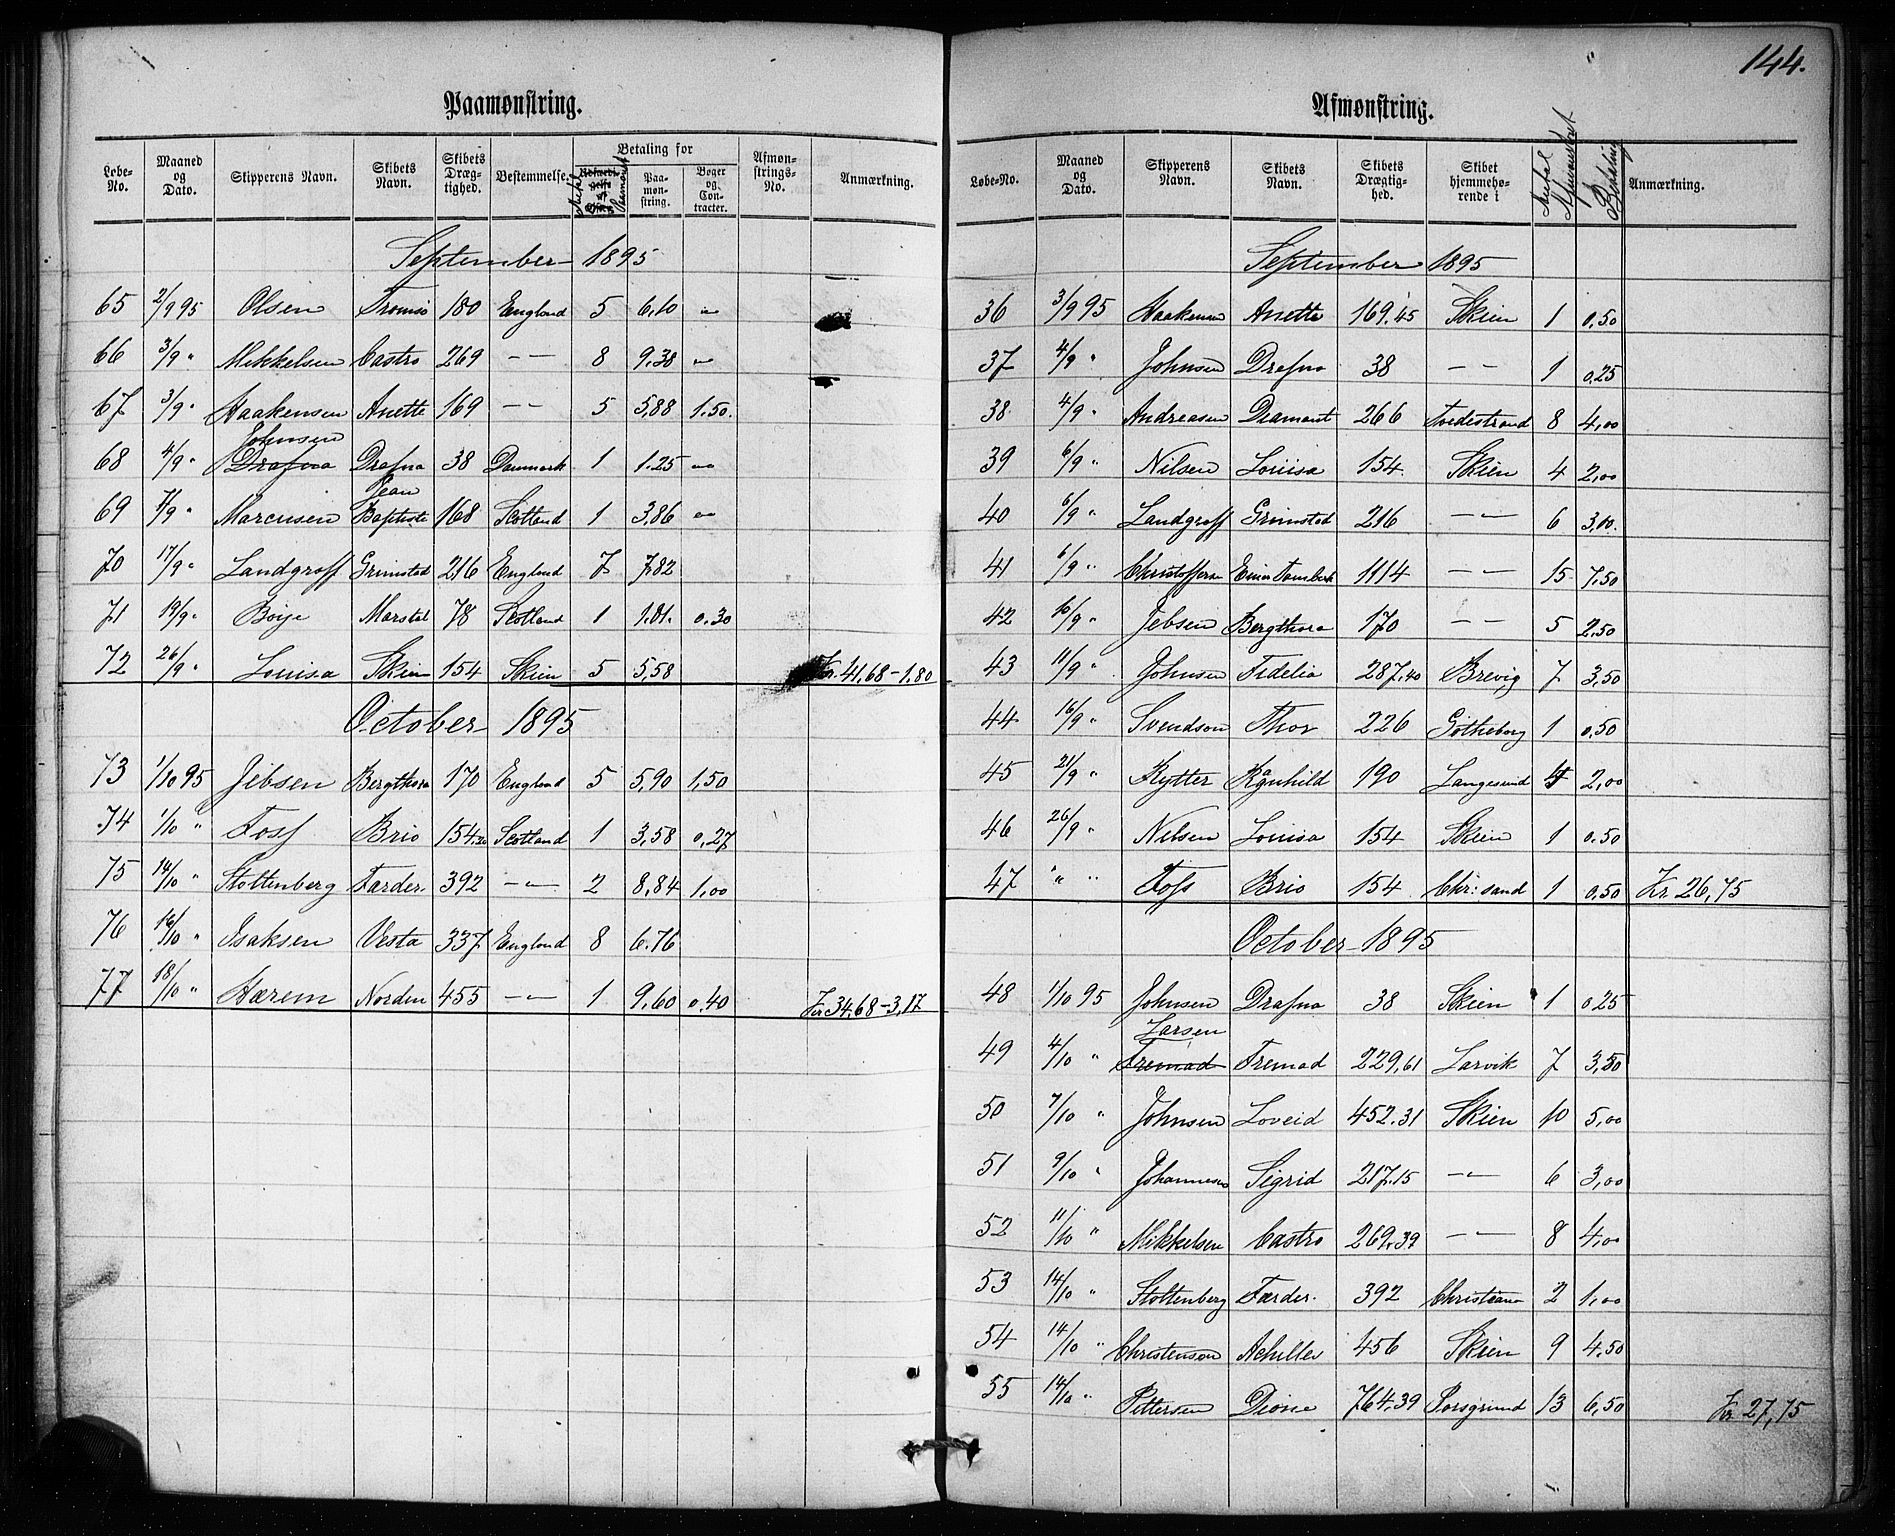 144.
Paamønstring.
Løbe-No. | Maaned og Dato. | Skipperens Navn. | Skibets Navn. | Skibets Drægtighed. | Bestemmelse. | Betaling for | Paamønstring. | Bøger og Contracter. | Afmønstrings-No. | Anmærkning.
September 1895
65 2/9 95 Olsen Tromsö 180 England 5 6,10 "
66 3/9 " Mikkelsen Castro 269 — " — 8 9.38 "
67 3/9 " Haakensen Anette 169 — " — 5 5,88 1.50.
Johnsen
68 4/9 " Drafna Drafna 38 Danmark 1 1.25 "
Jean
69 7/9 " Marcusen Baptiste 168 Scotland 1 3,86 "
70 17/9 " Landgraff Grimstad 216 England 7 7,82
71 19/9 " Böije Marstal 78 Scotland 1 1.01. 0.30
72 26/9 " Louisa Skien 154 Skien 5 5,58 Kr. 41,68 - 1,80
October 1895
73 1/10 95 Jebsen Bergthora 170 England 5 5,90 1,50
74 1/10 " Foss Brio 154.20 Scotland 1 3,58 0,27
75 14/10 " Stoltenberg Færder. 392 — " — 2 8,84 1,00
76 16/10 " Isaksen Vesta 337 England 8 6.76
77 18/10 " Hærem Norden 455 — " — 1 9,60 0,40 Kr 34,68 - 3,17
Afmønstring.
Løbe-No. | Maaned og Dato. | Skipperens Navn. | Skibets Navn. | Skibets Drægtighed. | Skibet hjemmehørende i | Antal Afmønstret | Betaling | Anmærkning.
September 1895
36 3/9 95 Haakensen Anette 169.45 Skien 1 0.50
37 4/9 " Johnsen Drafna 38 — " — 1 0,25
38. 4/9 " Andreasen Diamant 266 Tvedestrand 8 4,00
39 6/9 " Nilsen Louisa 154. Skien 4 2,00
40 6/9 " Landgraff Grimstad 216 — " — 6 3,00.
41 6/9 " Christoffersen Einer Tamberk 1114 — " — 15 7,50
42 10/9 " Jebsen Bergthora 170 — " — 5 2,50
43 11/9 " Johnsen Fidelia 287,40 Brevig 7 3,50
44 16/9 " Svendson Thor 226 Gotheborg 1 0.50
45 21/9 " Rytter Ragnhild 190 Langesund 4 2,00
46 26/9 " Nilsen Louisa 154 Skien 1 0.50
47 " " Foss Brio 154 Chr:sand 1 0.50 Kr 26,75
October 1895
48 1/10 95 Johnsen Drafna 38 Skien 1 0.25
Larsen
49 4/10 " Fremad Fremad 229,61 Larvik 7 3,50
50 7/10 " Johnsen Loveid 452.31 Skien 10 5,00
51 9/10 " Johannesen Sigrid 217.15 — " — 6 3,00
52 11/10 " Mikkelsen Castro 269.39 — " — 8 4,00
53 14/10 " Stoltenberg Færder. 392 Christiana 2 1,00
54 14/10 " Christenson Achilles 456 Skien 9 4.50
55 14/10 " Pettersen Dione 764.39 Porsgrund 13 6,50 Kr 27,75